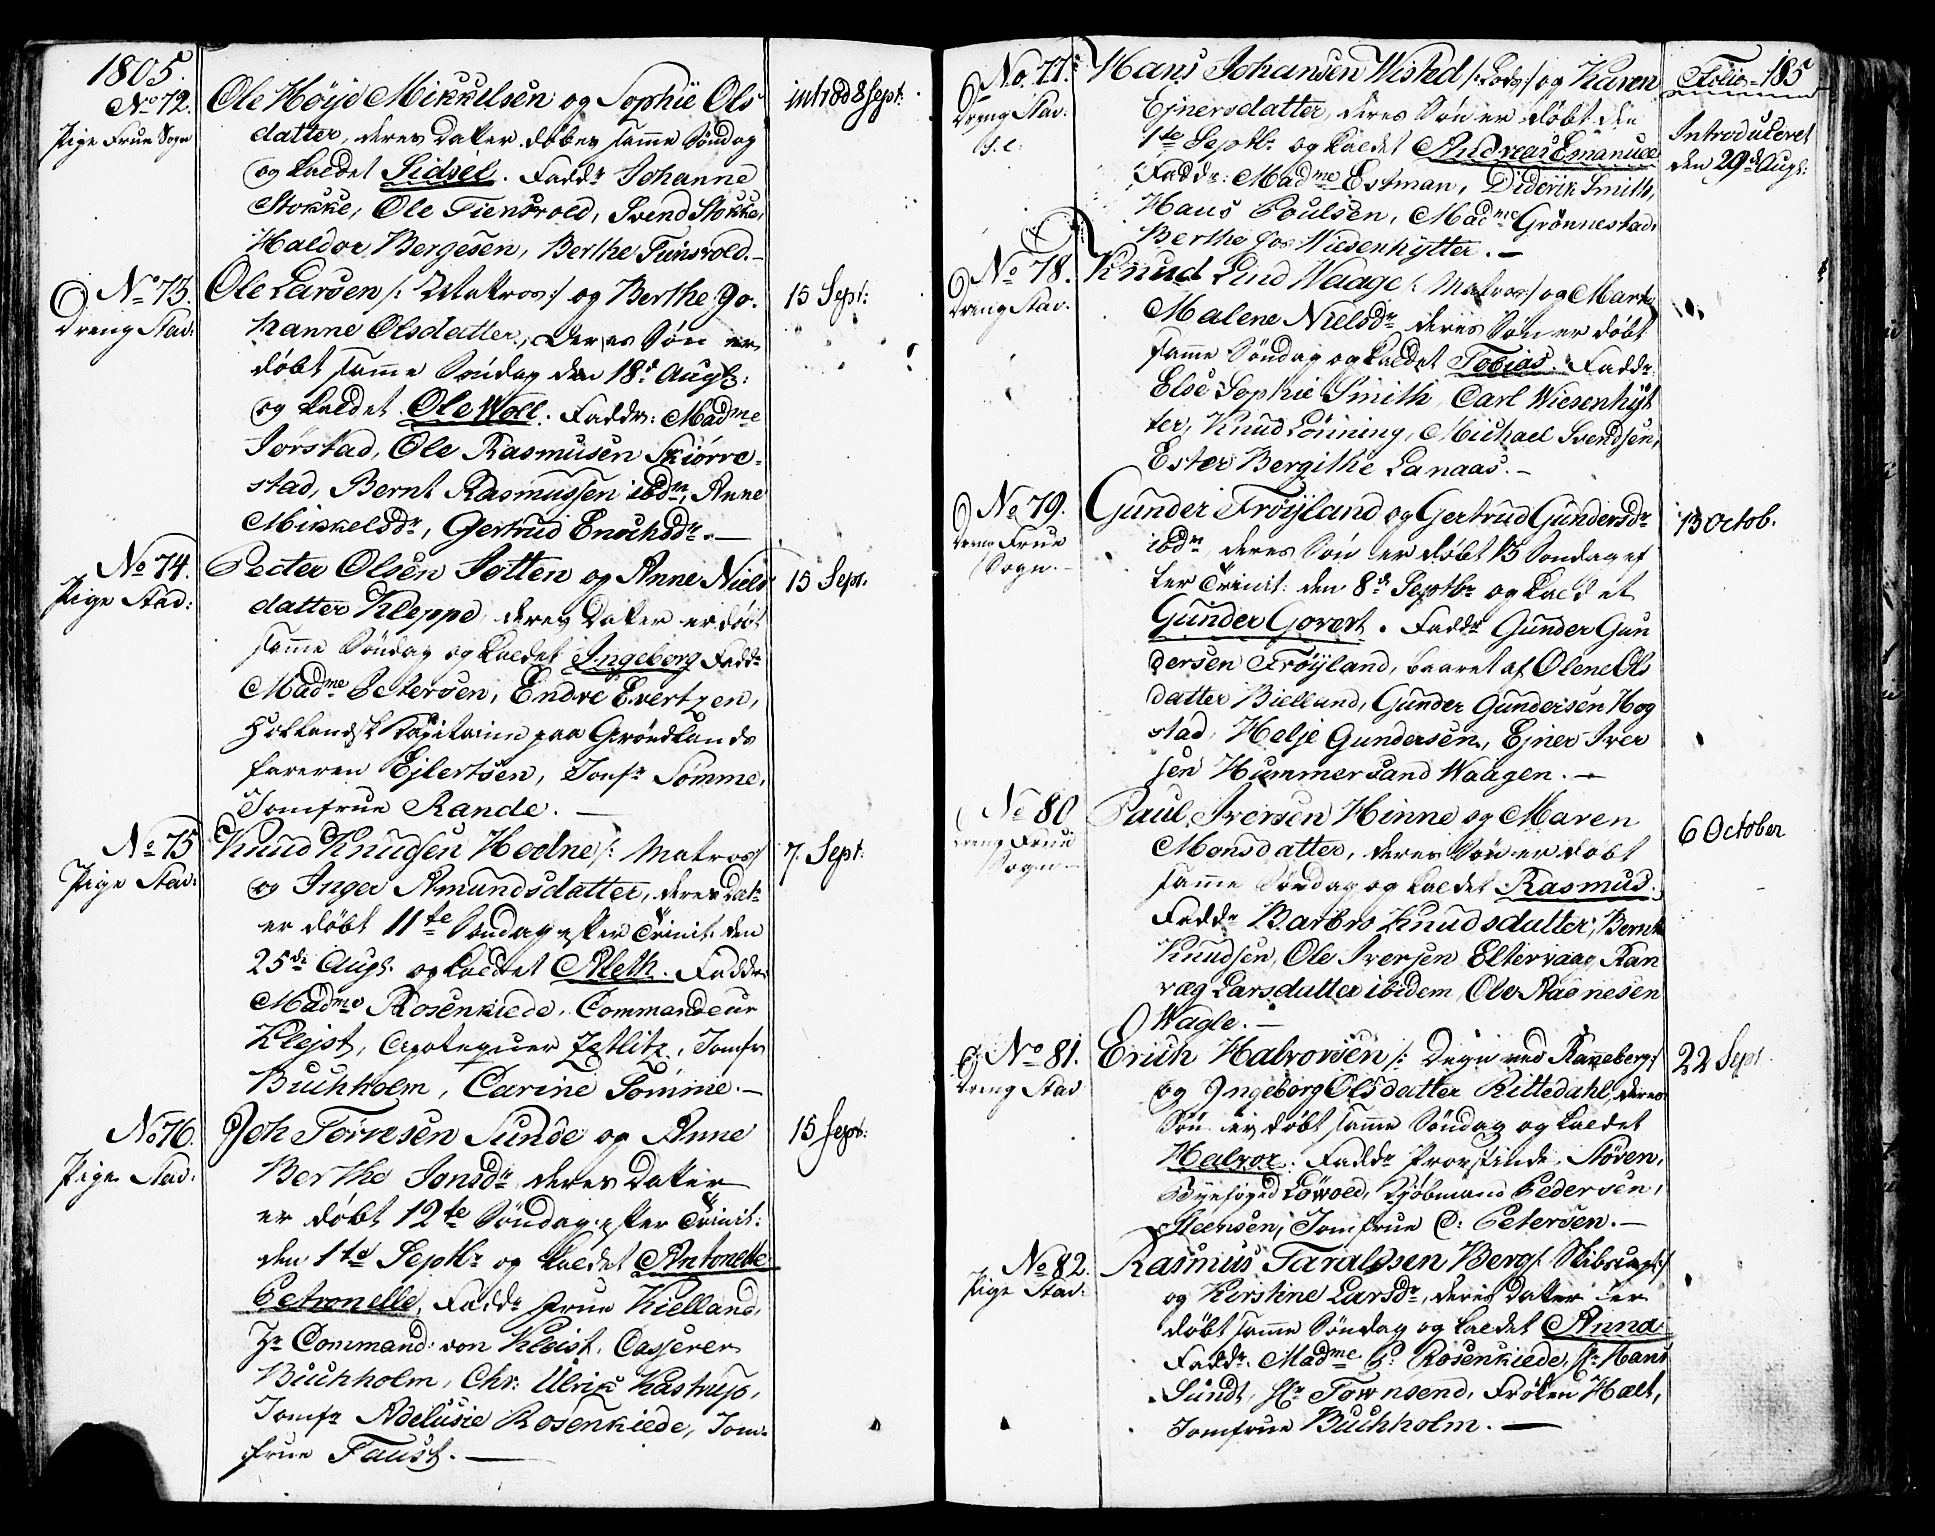 1805.
No 72.
Pige Frue Sogn
Ole Höye Mikkelsen og Sophie Ols
datter, deres Datter döbes samme Söndag
og kaldet Sidsel. Faddr Johanne
Stokke, Ole Tiensvold, Svend Stokke,
Haldor Bergesen, Berthe Tiensvold.—
introd 8 Sept:
No 73.
Dreng Stav:
Ole Larsen /: Matros :/ og Berthe Jo-
hanne Olsdatter, Deres Sön er
döbt samme Söndag den 18d Augs:
og kaldet Ole Woll. Faddr: Madme
Jörstad, Ole Rasmusen Skiörre-
stad, Bernt Rasmussen ibdm, Anne
Mikkelsdr, Gertrud Enochsdr.—
15 Sept:
No 74.
Pige Stad:
Peeter Olsen Jotten og Anne Niels
datter Kleppe, deres Datter er döbt
samme Söndag og kaldet Ingeborg Faddr
Madme Petersen, Endre Evertzen,
Hollandsk Capitaine paa Grönlands
fareren Ejlertsen, Jomfr Sömme,
Jomfrue Rande.—
15 Sept:
No 75
Pige Stav:
Knud Knudsen Hodne /: Matros :/
og Inger Amundsdatter, deres Dat:
er döbt 11te Söndag efter Trinit: den
25de Augs: og kaldet Aleth. Faddr
Madme Rosenkiede, Commandeur
Klejst, Apotequer Zetlitz, Jomfr
Buchholm, Carine Sömme.—
7. Sept:
No 76.
Pige Stad:
Joh Törresen Sunde og Anne
Berthe Jonsdr, deres Datter
er döbt 12te Söndag efter Trinit:
den 1te Septbr og kaldet Antonette
Petronelle, Faddr Frue Kielland,
Hr Command: von Kleist, Casserer
Buchholm, Chr: Ulrik Kastrup,
Jomfr Adelusie Rosenkiede, Jom-
frue Faust.—
15 Sept:
No 77.
Dreng Stav.
Hans Johansen Wisted /: Lods :/ og Karen
Ejnersdatter, deres Sön er döbt den
1te Septbr og kaldet Andreas Emanuel
Faddr: Madme Estman, Diderik Smith,
Hans Poulsen, Madme Grönnestad,
Berthe Wiesenhytter.—
Folio-185
Introduceret
den 29de Augs:
No 78.
Dreng Stav.
Knud Lind Waage /: Matros :/ og Marte
Malene Nielsdr deres Sön er döbt
samme Söndag og kaldet Tobias. Faddr:
Else Sophie Smith Carl Wiesenhyt
ter, Knud Lönning, Michael Svendsen,
Ester Bergithe Lanaas.—
No 79.
Dreng Frue
Sogn.—
Gunder Fröyland og Gertrud Gundersdr
ibdm, deres Sön er döbt 13 Söndag ef
ter Trinit: den 8de Septbr og kaldet
Gunder Govert. Faddr Gunder Gun
dersen Fröyland, baaret af Olene Ols
datter Bielland, Gunder Gundersen Hog
stad, Helje Gundersen, Ejner Iver
sen Hummersand Waagen.—
13 Octob.
No 80
Dreng Frue
Sogn.—
Paul Iversen Hinne og Maren
Monsdatter, deres Sön er döbt
samme Söndag og kaldet Rasmus.
Faddr Barbro Knudsdatter, Bernt
Knudsen, Ole Iversen Eltervaag, Ran
veg Larsdatter ibidem, Ole Aadnesen
Wagle.—
6 October
No 81.
Dreng Stad
Erich Halvorsen /: Degn ved Raneberg :/
og Ingeborg Olsdatter Kittedahl, deres
Sön er döbt samme Söndag og kaldet
Halvor. Faddr Provstinde Stören,
Byefoged Löwold, Kjöbmand Pedersen,
Steensen, Jomfrue C: Petersen.—
22 Sept
No 82.
Pige Stad:
Rasmus Taraldsen Berg /: Skibscapt :/
og Kirstine Larsdr, deres Datter er
döbt samme Söndag og kaldet Anna
Faddr. Madme P: Rosenkiede, Hr Hans
Sundt, Hr Townsend, Fröken Halt,
Jomfrue Buchholm.—